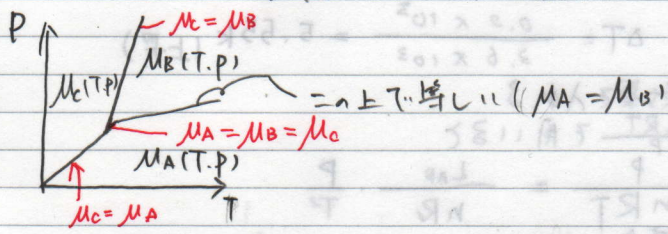 P
μc = μB
μB(T.P)
μc(T.P)
この上で等しい (μA = μB)
μA = μB = μc
μA(T.P)
T
μc = μA